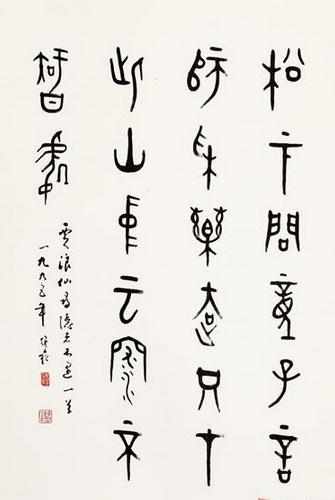 松下問童子言
師采藥去只才
此山中云深不
智處
賈浪仙尋隱者不遇一首
一九九五年